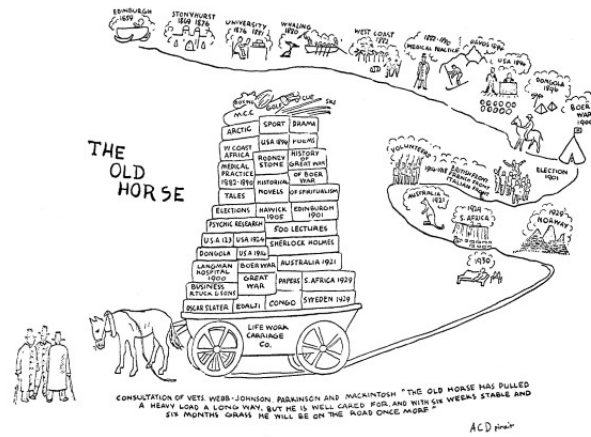 EDINBURGH
1859
STONYHURST
1869 1876
UNIVERSITY
1876 1881
WHALING
1880
WEST COAST
1882
1882-1890
MEDICAL PRACTICE
DAVOS 1894
USA 1894
DONGOLA
1896
BOER
WAR
1900
ELECTION
1901
VOLUNTEERS
1914-1918
BRITISH FRONT
FRENCH FRONT
ITALIAN FRONT
AUSTRALIA
1921
1929
S. AFRICA
1929
NORWAY
1930
THE
OLD
HORSE
BOXING
GOLF
CUE
SKI
M.C.C
ARCTIC
SPORT
DRAMA
W COAST
AFRICA
USA 1894
POEMS
MEDICAL
PRACTICE
1882-1890
RODNEY
STONE
HISTORY
OF
GREAT WAR
OF BOER
WAR
TALES
HISTORICAL
NOVELS
OF SPIRITUALISM
ELECTIONS
HAWICK
1905
EDINBURGH
1901
PSYCHIC RESEARCH
500 LECTURES
U.S.A 123
USA 1924
SHERLOCK HOLMES
DONGOLA
USA 1914
LANGMAN
HOSPITAL
1900
BOER WAR
AUSTRALIA 1921
GREAT
WAR
PAPERS
S. AFRICA 1929
BUSINESS
R.TUCK & SONS
OSCAR SLATER
EDALJI
CONGO
SWEDEN 1929
LIFE WORK
CARRIAGE
Co.
CONSULTATION OF VETS. WEBB-JOHNSON, PARKINSON AND MACKINTOSH "THE OLD HORSE HAS PULLED
A HEAVY LOAD A LONG WAY. BUT HE IS WELL CARED FOR, AND WITH SIX WEEKS STABLE AND
SIX MONTHS GRASS HE WILL BE ON THE ROAD ONCE MORE"
ACD pinxit